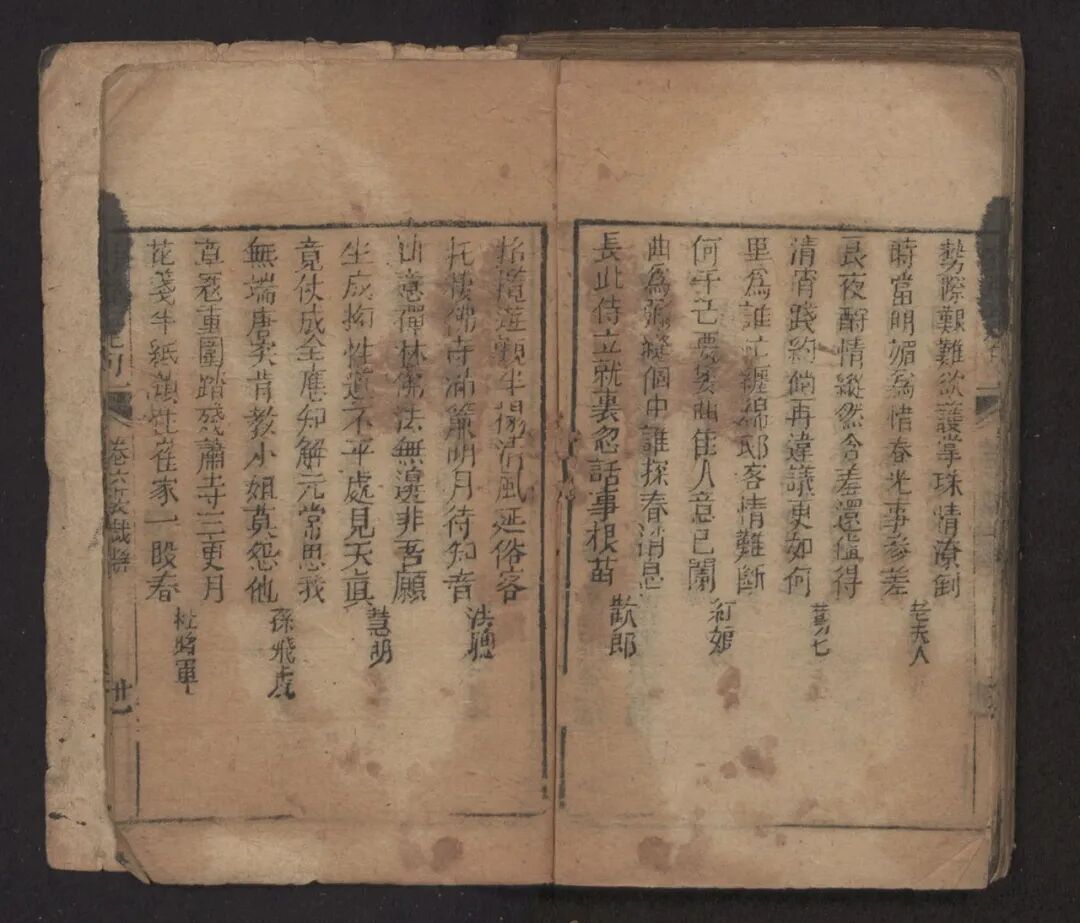 勢際艱難欲護掌珠情潦倒
時當明媚爲惜春光事參差
老夫人
良夜酧情縱然含羞還值得
清宵踐約倘再違議更如何
鶯七
里爲誰忙纏綿邸客情難斷
何干己憂佳人意已闌
紅娘
曲爲個中誰探春消息
長此侍立就裏忽話事根苗
歡郎
半榻清風延俗客
托棲佛寺滿簾明月待知音
法聰
意禪林佛法無邊非吾願
生成拘性道不平處見天眞
慧明
竟仗成全應知解元常思我
無端唐突肯教小姐莫怨他
孫飛虎
草寇重圍踏殘蕭寺三更月
花箋半紙額性崔家一段春
杜將軍
卷六
廿一